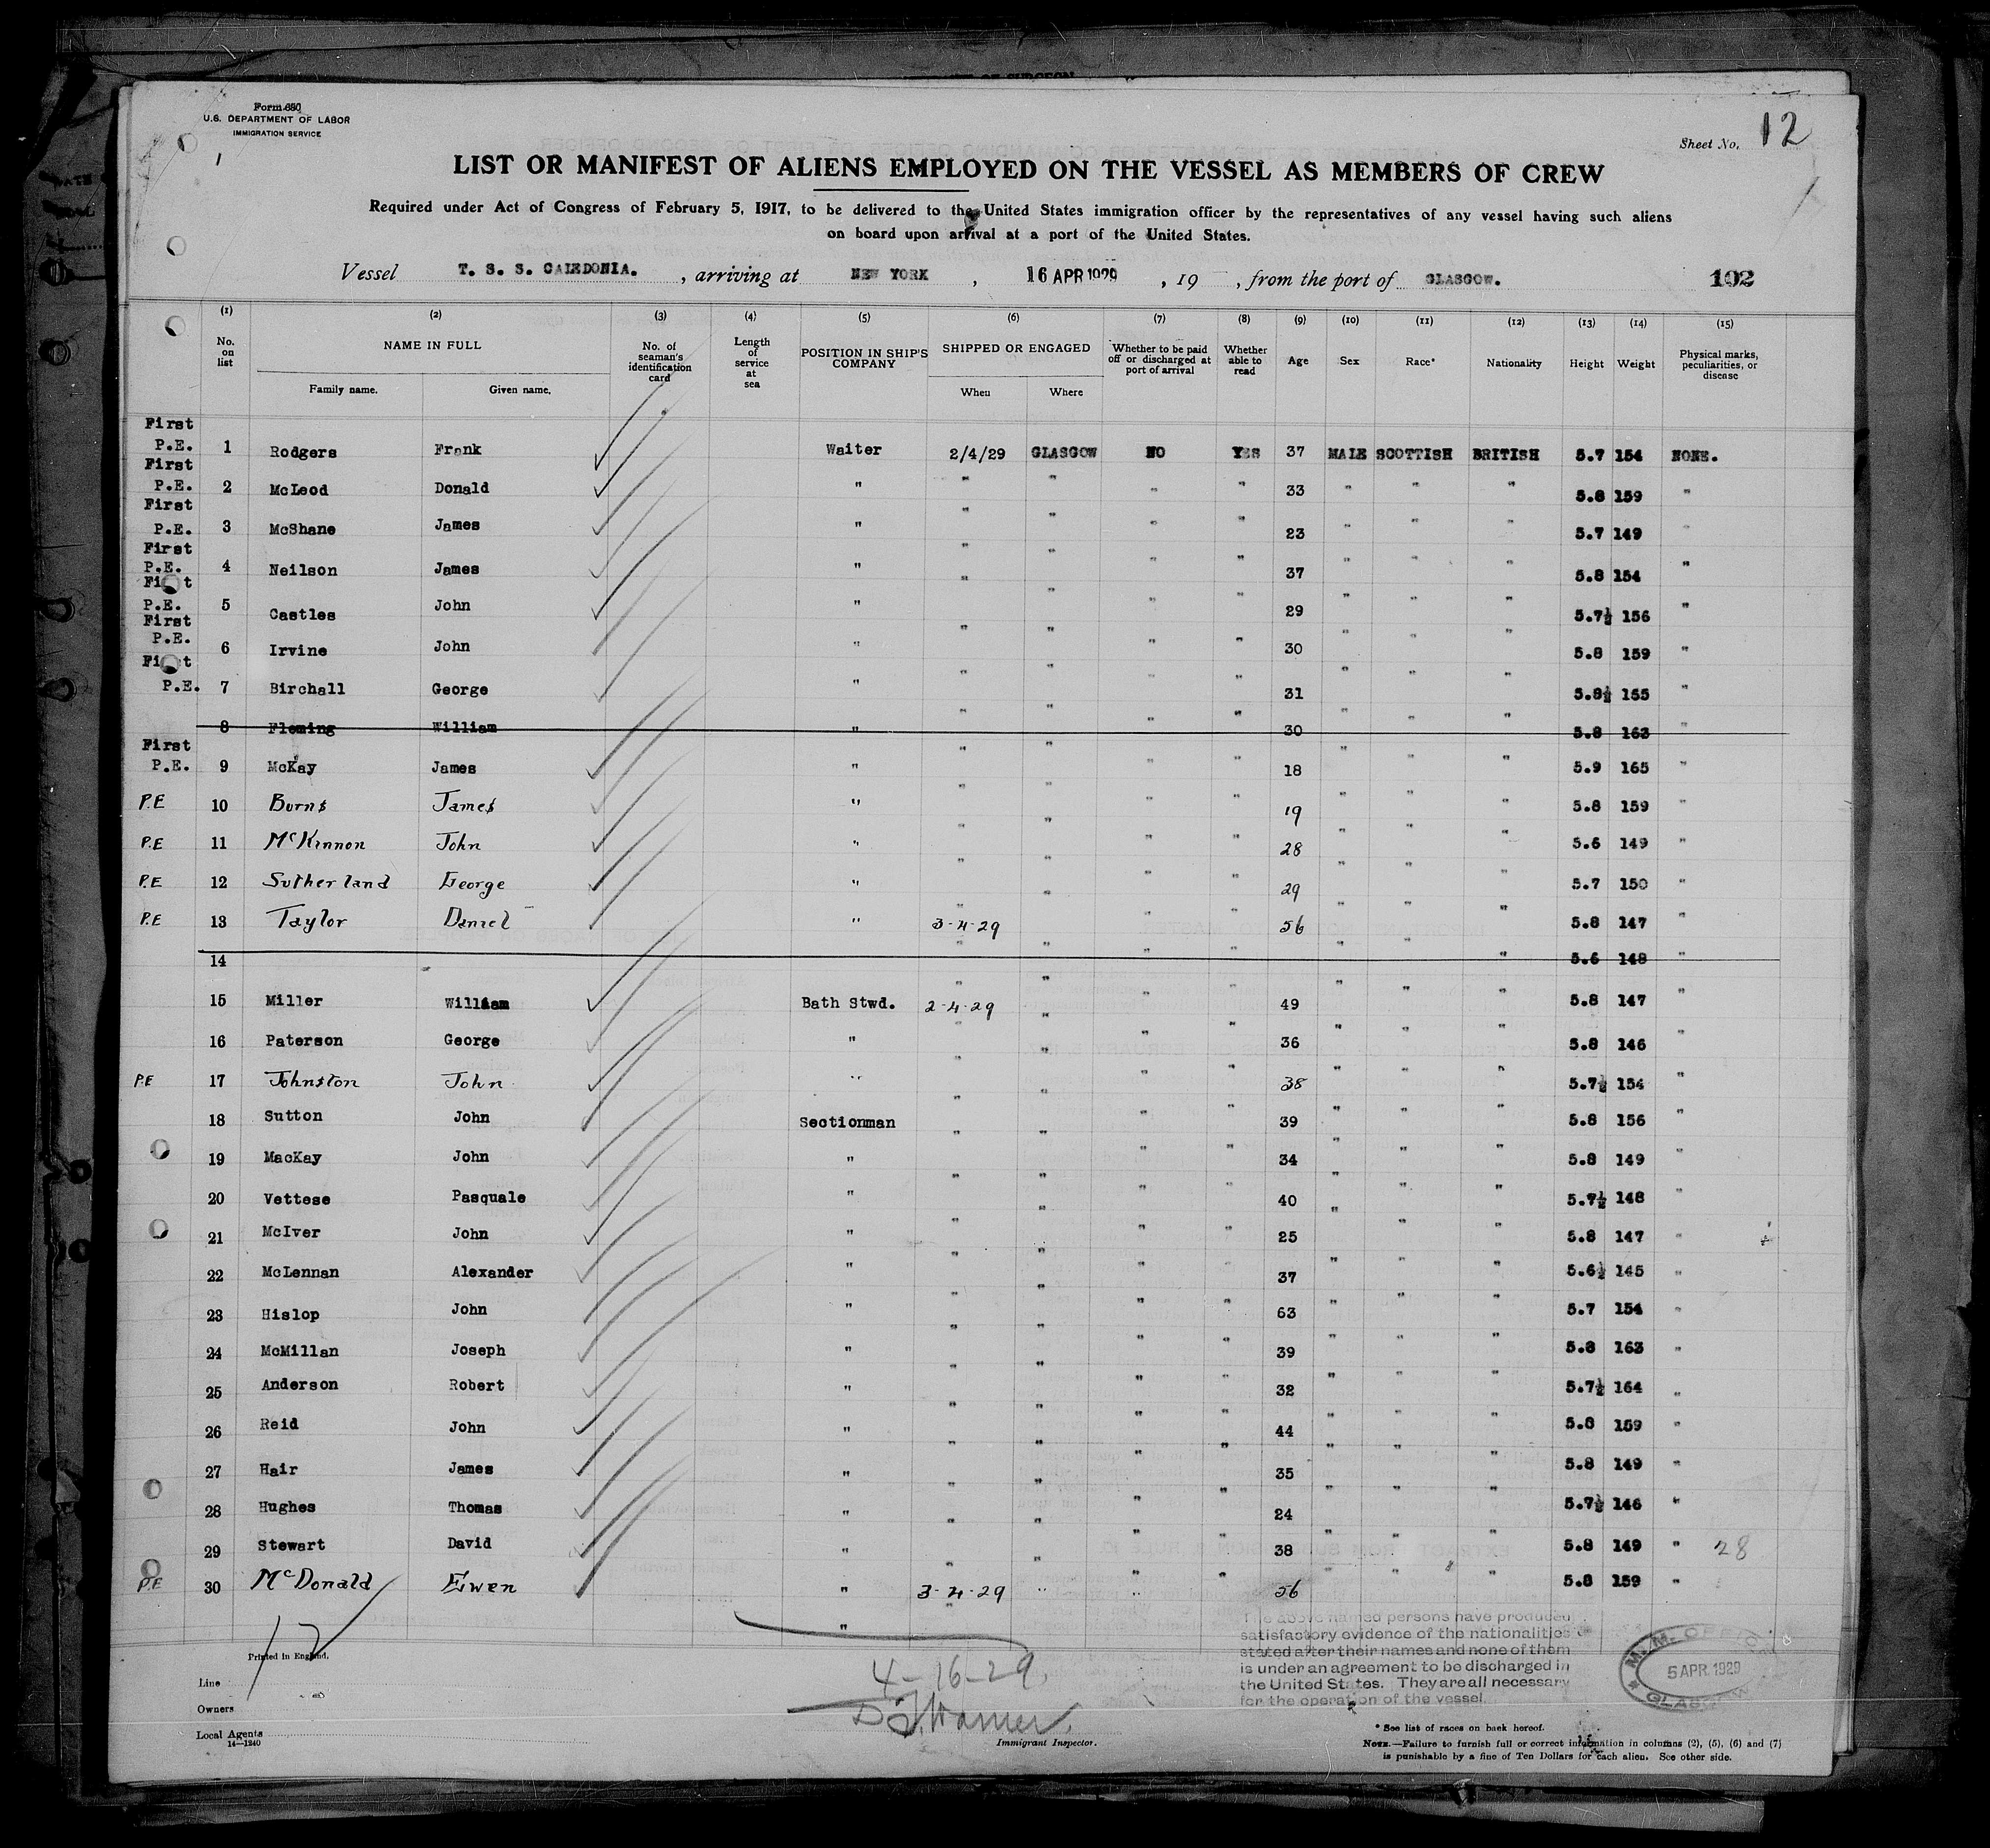 Form 680
U.S. DEPARTMENT OF LABOR
IMMIGRATION SERVICE
Sheet No. 12
LIST OR MANIFEST OF ALIENS EMPLOYED ON THE VESSEL AS MEMBERS OF CREW
Required under Act of Congress of February 5, 1917, to be delivered to the United States immigration officer by the representatives of any vessel having such aliens
on board upon arrival at a port of the United States.
Vessel T. S. S. CALEDONIA. , arriving at NEW YORK , 16 APR 1929 , 19 , from the port of GLASGOW. 102
(1) (2) (3) (4) (5) (6) (7) (8) (9) (10) (11) (12) (13) (14) (15)
No. on list NAME IN FULL Family name. Given name. No. of seaman's identification card Length of service at sea POSITION IN SHIP'S COMPANY SHIPPED OR ENGAGED When Where Whether to be paid off or discharged at port of arrival Whether able to read Age Sex Race* Nationality Height Weight Physical marks, peculiarities, or disease
First P.E. 1 Rodgers Frank Waiter 2/4/29 GLASGOW NO YES 37 MALE SCOTTISH BRITISH 5.7 154 NONE.
First P.E. 2 McLeod Donald " " " " " 33 " " " 5.8 159 "
First P.E. 3 McShane James " " " " " 23 " " " 5.7 149 "
First P.E. 4 Neilson James " " " " " 37 " " " 5.8 154 "
First P.E. 5 Castles John " " " " " 29 " " " 5.7½ 156 "
First P.E. 6 Irvine John " " " " " 30 " " " 5.8 159 "
First P.E. 7 Birchall George " " " " " 31 " " " 5.8½ 155 "
8 Fleming William " " " " " 30 " " " 5.8 163 "
First P.E. 9 McKay James " " " " " 18 " " " 5.9 165 "
P.E 10 Burns James " " " " " 19 " " " 5.8 159 "
P.E 11 McKinnon John " " " " " 28 " " " 5.6 149 "
P.E 12 Sutherland George " " " " " 29 " " " 5.7 150 "
P.E 13 Taylor Daniel " 3-4-29 " " 56 " " " 5.8 147 "
14 " " " " " " " 5.6 148 "
15 Miller William Bath Stwd. 2-4-29 " " " 49 " " " 5.8 147 "
16 Paterson George " " " " " 36 " " " 5.8 146 "
P.E 17 Johnston John " " " " " 38 " " " 5.7½ 154 "
18 Sutton John Sectionman " " " " 39 " " " 5.8 156 "
19 MacKay John " " " " " 34 " " " 5.8 149 "
20 Vettese Pasquale " " " " " 40 " " " 5.7½ 148 "
21 McIver John " " " " " 25 " " " 5.8 147 "
22 McLennan Alexander " " " " " 37 " " " 5.6½ 145 "
23 Hislop John " " " " " 63 " " " 5.7 154 "
24 McMillan Joseph " " " " " 39 " " " 5.8 163 "
25 Anderson Robert " " " " " 32 " " " 5.7½ 164 "
26 Reid John " " " " " 44 " " " 5.8 159 "
27 Hair James " " " " " 35 " " " 5.8 149 "
28 Hughes Thomas " " " " " 24 " " " 5.7½ 146 "
29 Stewart David " " " " " 38 " " " 5.8 149 " 28
P.E 30 McDonald Ewen " 3-4-29 " " " 56 " " " 5.8 159 "
"
12
Printed in England.
The above named persons have produced
satisfactory evidence of the nationalities
stated after their names and none of them
is under an agreement to be discharged in
the United States. They are all necessary
for the operation of the vessel.
M. M. OFFICE
5 APR. 1929
GLASGOW
4-16-29.
Line
Owners
Local Agents
14—1240
Immigrant Inspector.
* See list of races on back hereof.
NOTE.—Failure to furnish full or correct information in columns (2), (5), (6) and (7)
is punishable by a fine of Ten Dollars for each alien. See other side.